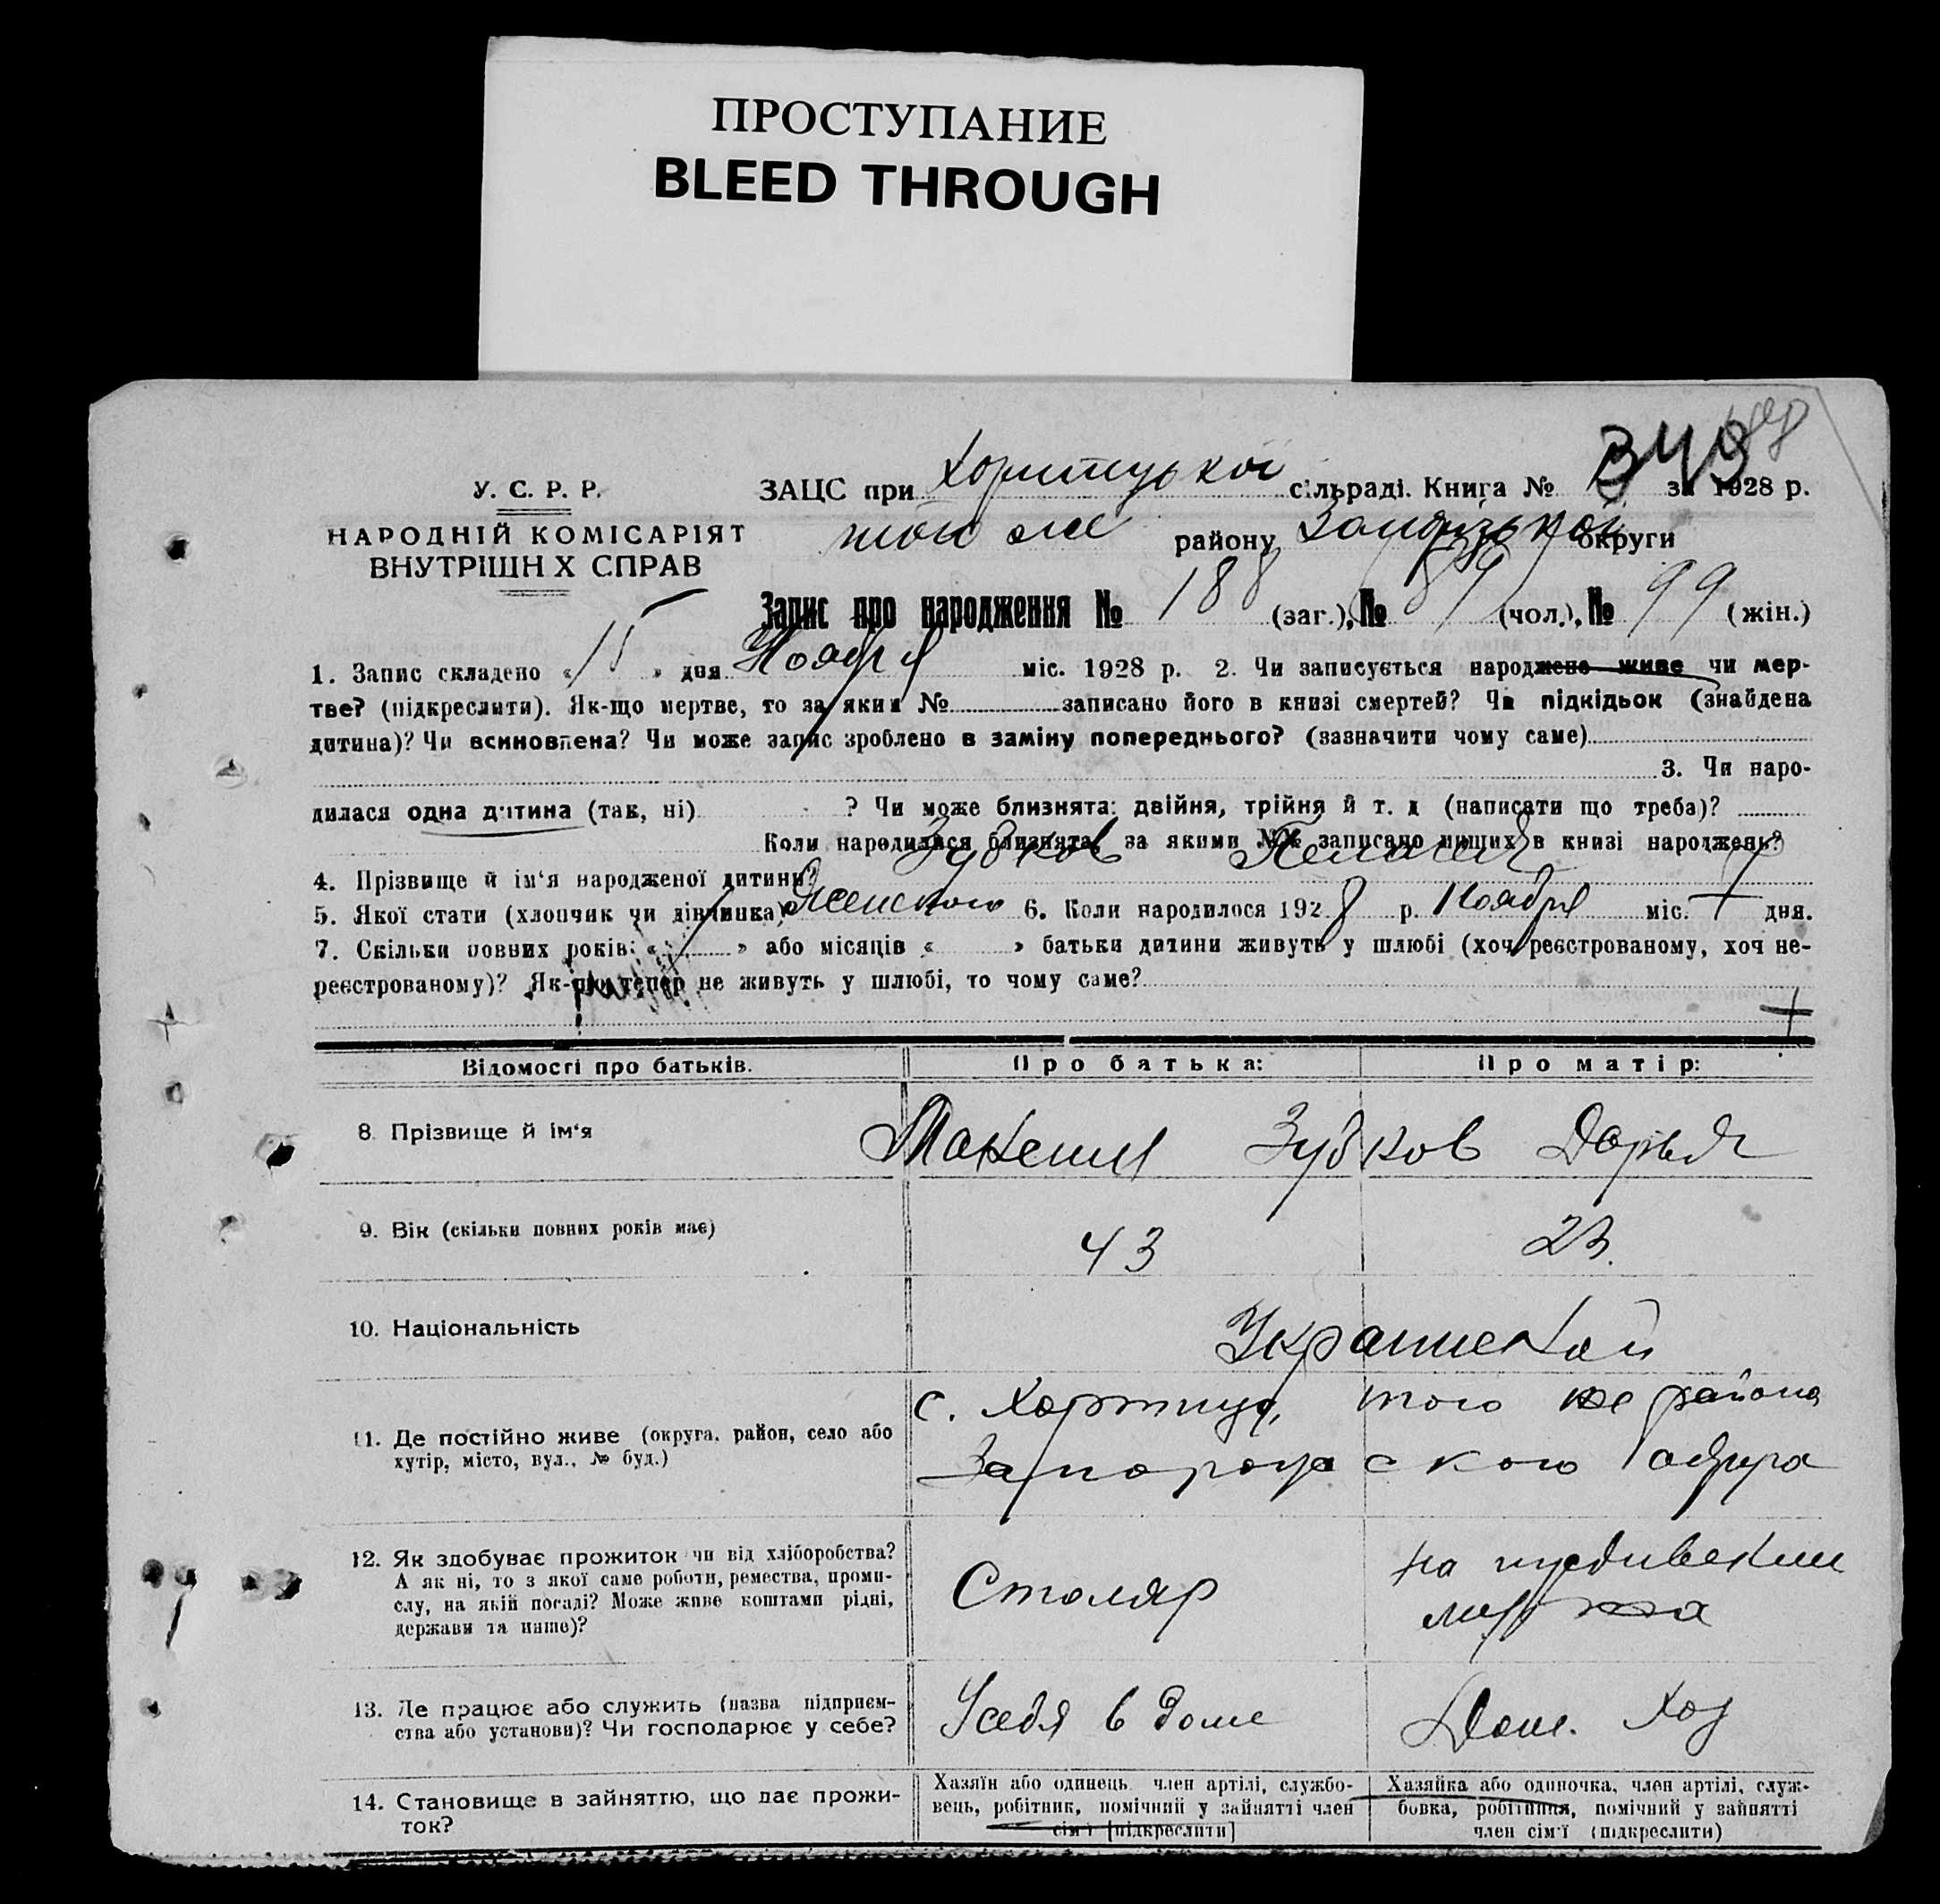 ПРОСТУПАНИЕ
BLEED THROUGH
У. С. Р. Р.
НАРОДНІЙ КОМІСАРІЯТ
ВНУТРІШН Х СПРАВ
ЗАЦС при Хортицької сільраді. Книга № за 1928 р.
того же району округи
Запис про народження № 188 (заг.), № 89 (чол.), № 99 (жін.)
1. Запис складено « 15 » дня Ноября міс. 1928 р. 2. Чи записується народжено живе чи мер-
тве? (підкреслити). Як-що мертве, то за яким № записано його в книзі смертей? Чи підкідьок (знайдена
дитина)? Чи всиновлена? Чи може запис зроблено в заміну попереднього? (зазначити чому саме)
3. Чи наро-
дилася одна дитина (так, ні) ? Чи може близнята: двійня, трійня й т. д (написати що треба)?
Коли народилися близнята, за якими №№ записано инших в книзі народжень?
4. Прізвище й ім'я народженої дитини? Зубков
5. Якої стати (хлопчик чи дівчинка) Женского 6. Коли народилося 1928 р. Ноября міс. 7 дня.
7. Скільки повних років: « » або місяців « » батьки дитини живуть у шлюбі (хоч реєстрованому, хоч не-
реєстрованому)? Як-що тепер не живуть у шлюбі, то чому саме?
Відомості про батьків.
Про батька:
Про матір:
8. Прізвище й ім'я
Максим Зубков Дарья
9. Вік (скільки повних років має)
43
23.
10. Національність
11. Де постійно живе (округа, район, село або
хутір, місто, вул., № буд.)
с. Хортица, того же района
Запорожского округа
12. Як здобуває прожиток чи від хліборобства?
А як ні, то з якої саме роботи, ремества, проми-
слу, на якій посаді? Може живе коштами рідні,
держави та инше)?
Столяр
на иждивении
мужа
13. Де працює або служить (назва підприєм-
ства або установи)? Чи господарює у себе?
У себя в доме
Дом. Хоз
14. Становище в зайняттю, що дає прожи-
ток?
Хазяїн або одинець член артілі, службо-
вець, робітник, помічний у зайнятті член
сім'ї [підкреслити]
Хазяйка або одиночка, член артілі, служ-
бовка, робітниця, помічний у зайнятті
член сім'ї (підкреслити)